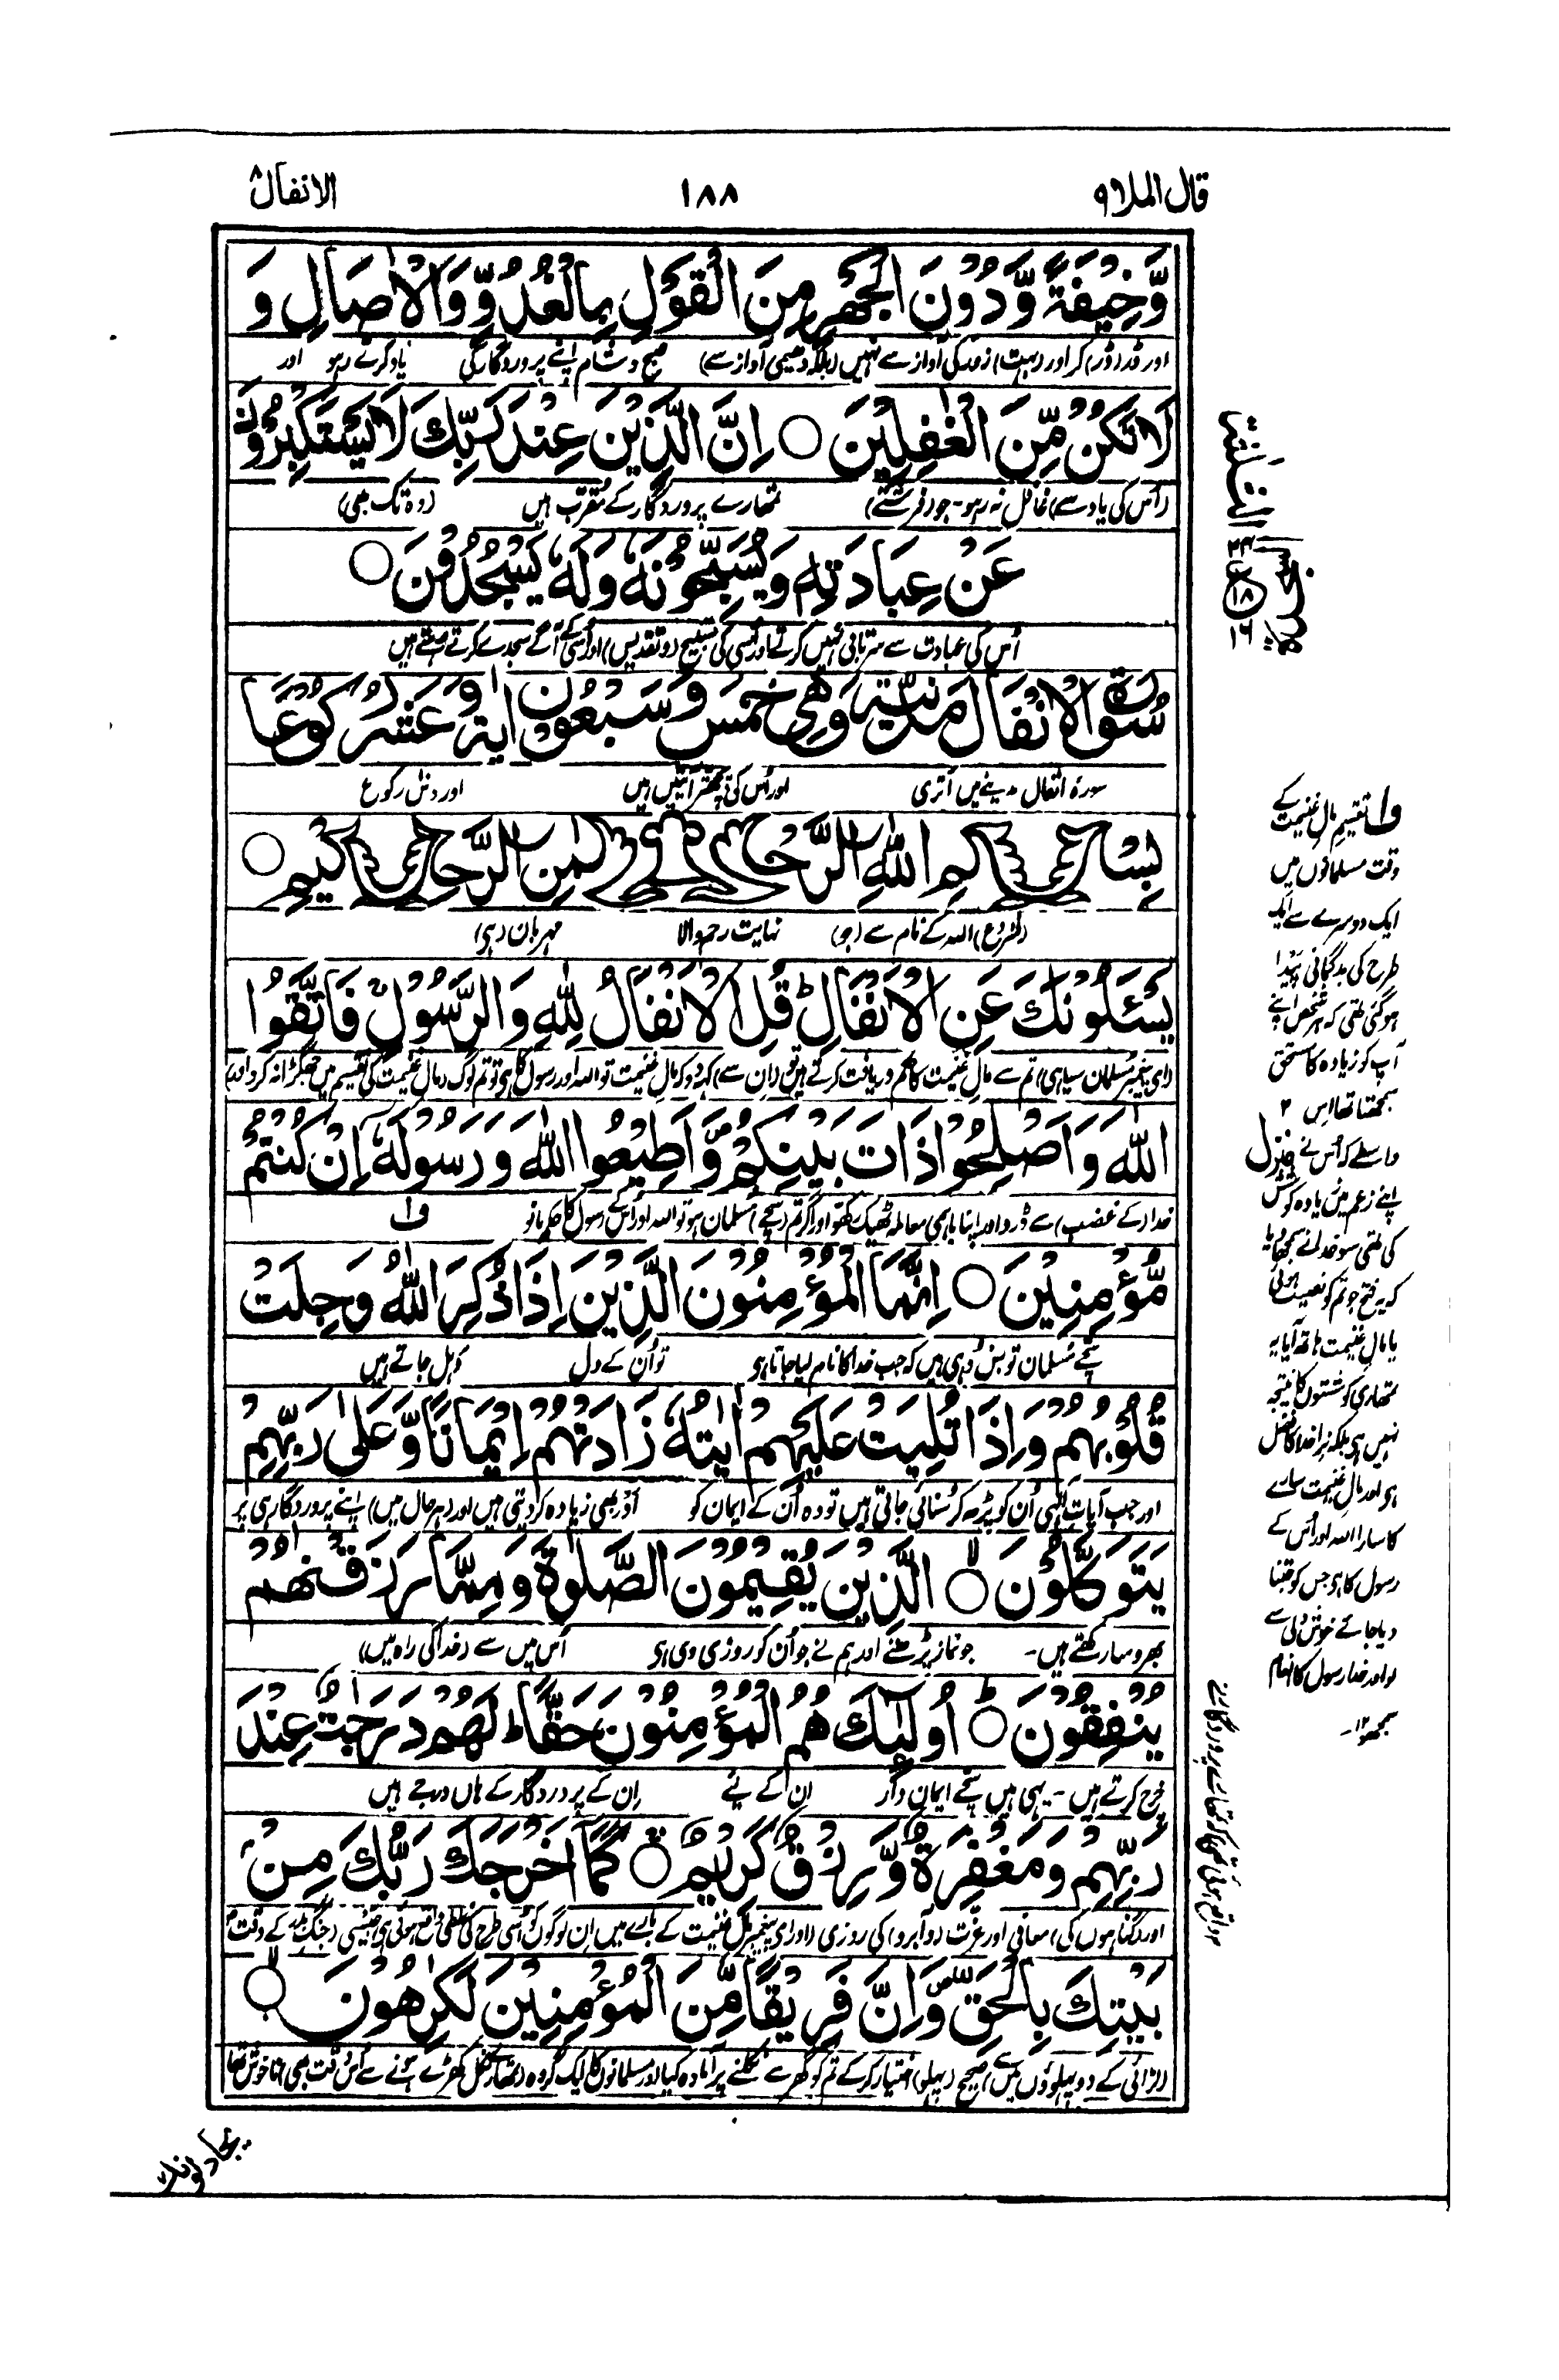 قال الملا ۹
۱۸۸
الانفال ۸
وَّخِيْفَةً وَّدُوْنَ الْجَهْرِ مِنَ الْقَوْلِ بِالْغُدُوِّ وَالْاٰصَالِ وَ
اور ڈر (ڈر) کر اور (بہت) زور کی آواز سے نہیں (بلکہ دھیمی آواز سے) صبح و شام اپنے پروردگار کی یاد کرتے رہو اور
لَا تَكُنْ مِّنَ الْغٰفِلِيْنَ ○ اِنَّ الَّذِيْنَ عِنْدَ رَبِّكَ لَا يَسْتَكْبِرُوْنَ
(اُس کی یاد سے) غافل نہ رہو۔ جو (فرشتے) تمھارے پروردگار کے مقرّب ہیں (وہ تک بھی)
عَنْ عِبَادَتِهٖ وَيُسَبِّحُوْنَهٗ وَلَهٗ يَسْجُدُوْنَ ○
اُس کی عبادت سے سرتابی نہیں کرتے اور اُسی کی تسبیح (و تقدیس) اور اُسی کے آگے سجدے کرتے رہتے ہیں
سُوْرَةُ الْاَنْفَالِ مَدَنِيَّةٌ وَّهِيَ خَمْسٌ وَّسَبْعُوْنَ اٰيَةً وَّعَشْرُ رُكُوْعًا
سورۂ انفال مدینے میں اُتری اور اُس کی پچھتّر آیتیں ہیں اور دس رکوع
بِسْمِ اللّٰهِ الرَّحْمٰنِ الرَّحِيْمِ ○
(شروع) اللہ کے نام سے (جو) نہایت رحم والا مہربان (ہی)
يَسْـَٔلُوْنَكَ عَنِ الْاَنْفَالِ ؕ قُلِ الْاَنْفَالُ لِلّٰهِ وَالرَّسُوْلِ ۚ فَاتَّقُوا
(ای پیغمبر مسلمان سپاہی) تم سے مالِ غنیمت کا حکم دریافت کرتے ہیں تو (ان سے) کہدو کہ مالِ غنیمت تو اللہ اور رسول کا ہی تو تم لوگ (مالِ غنیمت کی تقسیم میں جھگڑا نہ کرو اور)
اللّٰهَ وَاَصْلِحُوْا ذَاتَ بَيْنِكُمْ ۪ وَاَطِيْعُوا اللّٰهَ وَرَسُوْلَهٗ اِنْ كُنْتُمْ
خدا (کے غضب) سے ڈرو اور اپنا باہمی معاملہ ٹھیک رکھو اور اگر تم (سچے) مسلمان ہو تو اللہ اور اُس کے رسول کا حکم مانو ف۱
مُّؤْمِنِيْنَ ○ اِنَّمَا الْمُؤْمِنُوْنَ الَّذِيْنَ اِذَا ذُكِرَ اللّٰهُ وَجِلَتْ
سچے مسلمان تو بس وہی ہیں کہ جب خدا کا نام لیا جاتا ہی تو اُن کے دل دہل جاتے ہیں
قُلُوْبُهُمْ وَاِذَا تُلِيَتْ عَلَيْهِمْ اٰيٰتُهٗ زَادَتْهُمْ اِيْمَانًا وَّعَلٰى رَبِّهِمْ
اور جب آیاتِ الٰہی اُن کو پڑھ کر سُنائی جاتی ہیں تو وہ اُن کے ایمان کو اَور بھی زیادہ کر دیتی ہیں اور (ہر حال میں) اپنے پروردگار ہی پر
يَتَوَكَّلُوْنَ ○ الَّذِيْنَ يُقِيْمُوْنَ الصَّلٰوةَ وَمِمَّا رَزَقْنٰهُمْ
بھروسا رکھتے ہیں۔ جو نماز پڑھتے اور ہم نے جو اُن کو روزی دی ہی اُس میں سے (خدا کی راہ میں)
يُنْفِقُوْنَ ○ اُولٰٓئِكَ هُمُ الْمُؤْمِنُوْنَ حَقًّا ؕ لَهُمْ دَرَجٰتٌ عِنْدَ
خرچ کرتے ہیں۔ یہی ہیں سچّے ایمان دار ان کے لیے اِن کے پروردگار کے ہاں درجے ہیں
رَبِّهِمْ وَمَغْفِرَةٌ وَّرِزْقٌ كَرِيْمٌ ○ كَمَاۤ اَخْرَجَكَ رَبُّكَ مِنْۢ
اور (گناہوں کی) معافی اور عزّت (و آبرو) کی روزی (اور ای پیغمبر مالِ غنیمت کے بارے میں اِن لوگوں کو اُسی طرح کی غلطی واقع ہوئی ہی جیسی (جنگِ بدر کے وقت
بَيْتِكَ بِالْحَقِّ ۪ وَاِنَّ فَرِيْقًا مِّنَ الْمُؤْمِنِيْنَ لَكٰرِهُوْنَ ○
(لڑائی کے دو پہلوؤں میں سے) صحیح (پہلو) اختیار کر کے تم کو گھر سے نکلنے پر آمادہ کیا اور مسلمانوں کا ایک گروہ (تمھارے نکل کھڑے ہونے سے اُس وقت بھی) ناخوش تھا
ف۱ تقسیمِ مالِ غنیمت کے
وقت مسلمانوں میں
ایک دوسرے سے ایک
طرح کی بدگمانی پیدا
ہو گئی تھی کہ ہر شخص اپنے
آپ کو زیادہ کا مستحق
سمجھتا تھا اس ۲
واسطے کہ اُس نے منزل
اپنے زعم میں زیادہ کوشش
کی تھی سو خدا نے سمجھا دیا
کہ یہ فتح جو تم کو نصیب ہوئی
یا مالِ غنیمت ہاتھ آیا یہ
تمھاری کوششوں کا نتیجہ
نہیں ہی بلکہ نرا خدا کا فضل
ہی اور مالِ غنیمت سارے
کا سارا اللہ اور اُس کے
رسول کا ہی جس کو جتنا
دیا جائے خوش دلی سے
لو اور خدا رسول کا انعام
سمجھو ۱۲۔